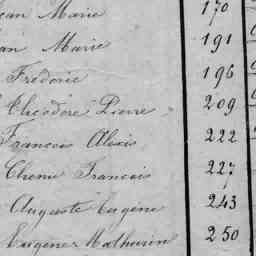 Jean Marie 170
Jean Marie 191
Frédéric 196
Théodore Pierre 209
François Alexis 222
François 227
Auguste Eugène 243
Eugène Mathurin 250